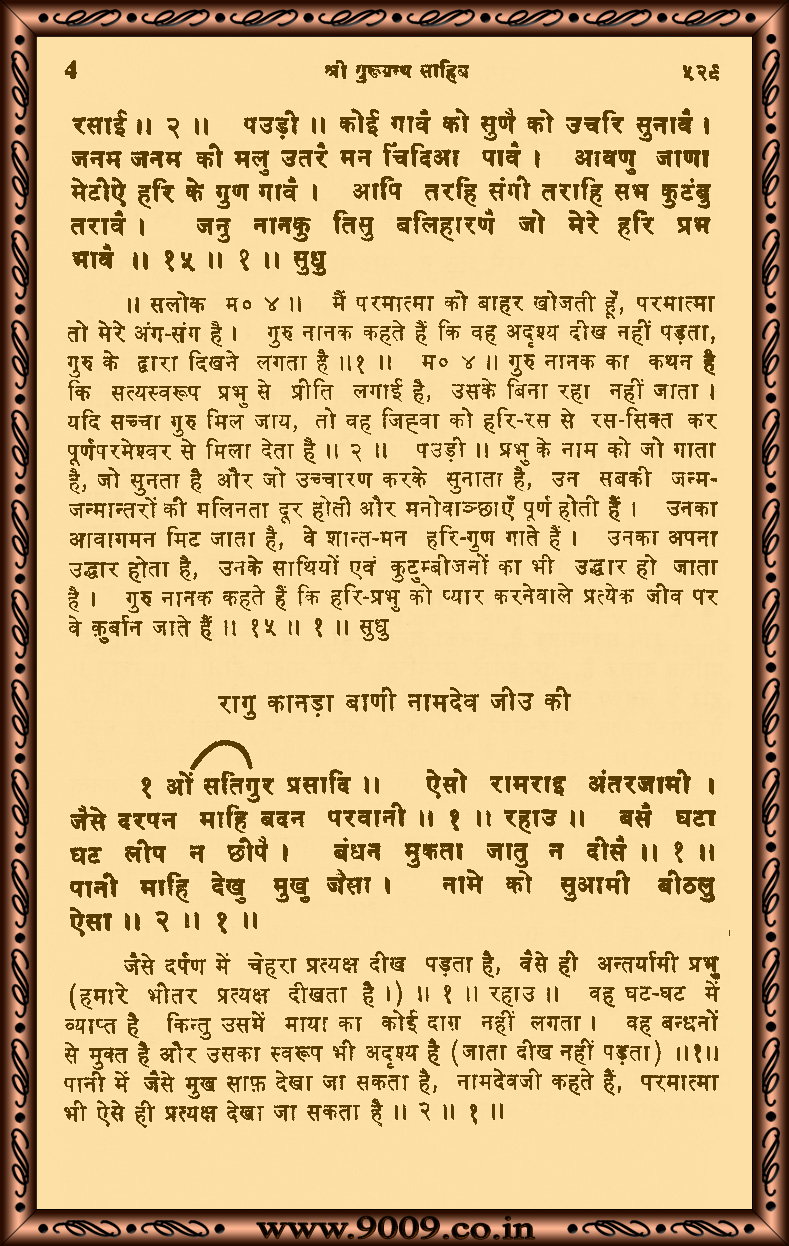 4 श्री गुरूग्रन्थ साहिब ५२९
रसाई ॥ २ ॥ पउड़ी ॥ कोई गावै को सुणै को उचरि सुनावै ।
जनम जनम की मलु उतरै मन चिंदिआ पावै । आवणु जाणा
मेटीऐ हरि के गुण गावै । आपि तरहि संगी तराहि सभ कुटंबु
तरावै । जनु नानकु तिसु बलिहारणै जो मेरे हरि प्रभ
भावै ॥ १५ ॥ १ ॥ सुधु
॥ सलोक म० ४ ॥ मैं परमात्मा को बाहर खोजती हूँ, परमात्मा
तो मेरे अंग-संग है । गुरु नानक कहते हैं कि वह अदृश्य दीख नहीं पड़ता,
गुरु के द्वारा दिखने लगता है ॥१ ॥ म० ४ ॥ गुरु नानक का कथन है
कि सत्यस्वरूप प्रभु से प्रीति लगाई है, उसके बिना रहा नहीं जाता ।
यदि सच्चा गुरु मिल जाय, तो वह जिह्वा को हरि-रस से रस-सिक्त कर
पूर्णपरमेश्वर से मिला देता है ॥ २ ॥ पउड़ी ॥ प्रभु के नाम को जो गाता
है, जो सुनता है और जो उच्चारण करके सुनाता है, उन सबकी जन्म-
जन्मान्तरों की मलिनता दूर होती और मनोवाञ्छाएँ पूर्ण होती हैं । उनका
आवागमन मिट जाता है, वे शान्त-मन हरि-गुण गाते हैं । उनका अपना
उद्धार होता है, उनके साथियों एवं कुटुम्बीजनों का भी उद्धार हो जाता
है । गुरु नानक कहते हैं कि हरि-प्रभु को प्यार करनेवाले प्रत्येक जीव पर
वे क़ुर्बान जाते हैं ॥ १५ ॥ १ ॥ सुधु
रागु कानड़ा बाणी नामदेव जीउ की
१ ओं सतिगुर प्रसादि ॥ ऐसो रामराइ अंतरजामी ।
जैसे दरपन माहि बदन परवानी ॥ १ ॥ रहाउ ॥ बसै घटा
घट लीप न छीपै । बंधन मुकता जातु न दीसै ॥ १ ॥
पानी माहि देखु मुखु जैसा । नामे को सुआमी बीठलु
ऐसा ॥ २ ॥ १ ॥
जैसे दर्पण में चेहरा प्रत्यक्ष दीख पड़ता है, वैसे ही अन्तर्यामी प्रभु
(हमारे भीतर प्रत्यक्ष दीखता है ।) ॥ १ ॥ रहाउ ॥ वह घट-घट में
व्याप्त है किन्तु उसमें माया का कोई दाग़ नहीं लगता । वह बन्धनों
से मुक्त है और उसका स्वरूप भी अदृश्य है (जाता दीख नहीं पड़ता) ॥१॥
पानी में जैसे मुख साफ़ देखा जा सकता है, नामदेवजी कहते हैं, परमात्मा
भी ऐसे ही प्रत्यक्ष देखा जा सकता है ॥ २ ॥ १ ॥
www.9009.co.in